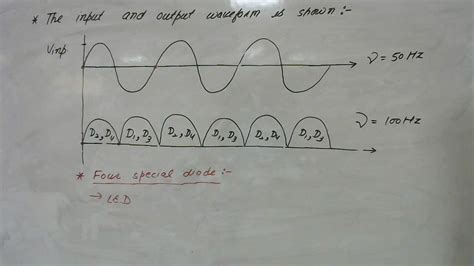 * The input and output waveform is shown:-
Vinp
ν = 50 Hz
D2, D4 D1, D3 D2, D4 D1, D3 D2, D4 D1, D3
ν = 100 Hz
* Four special diode:-
→ LED